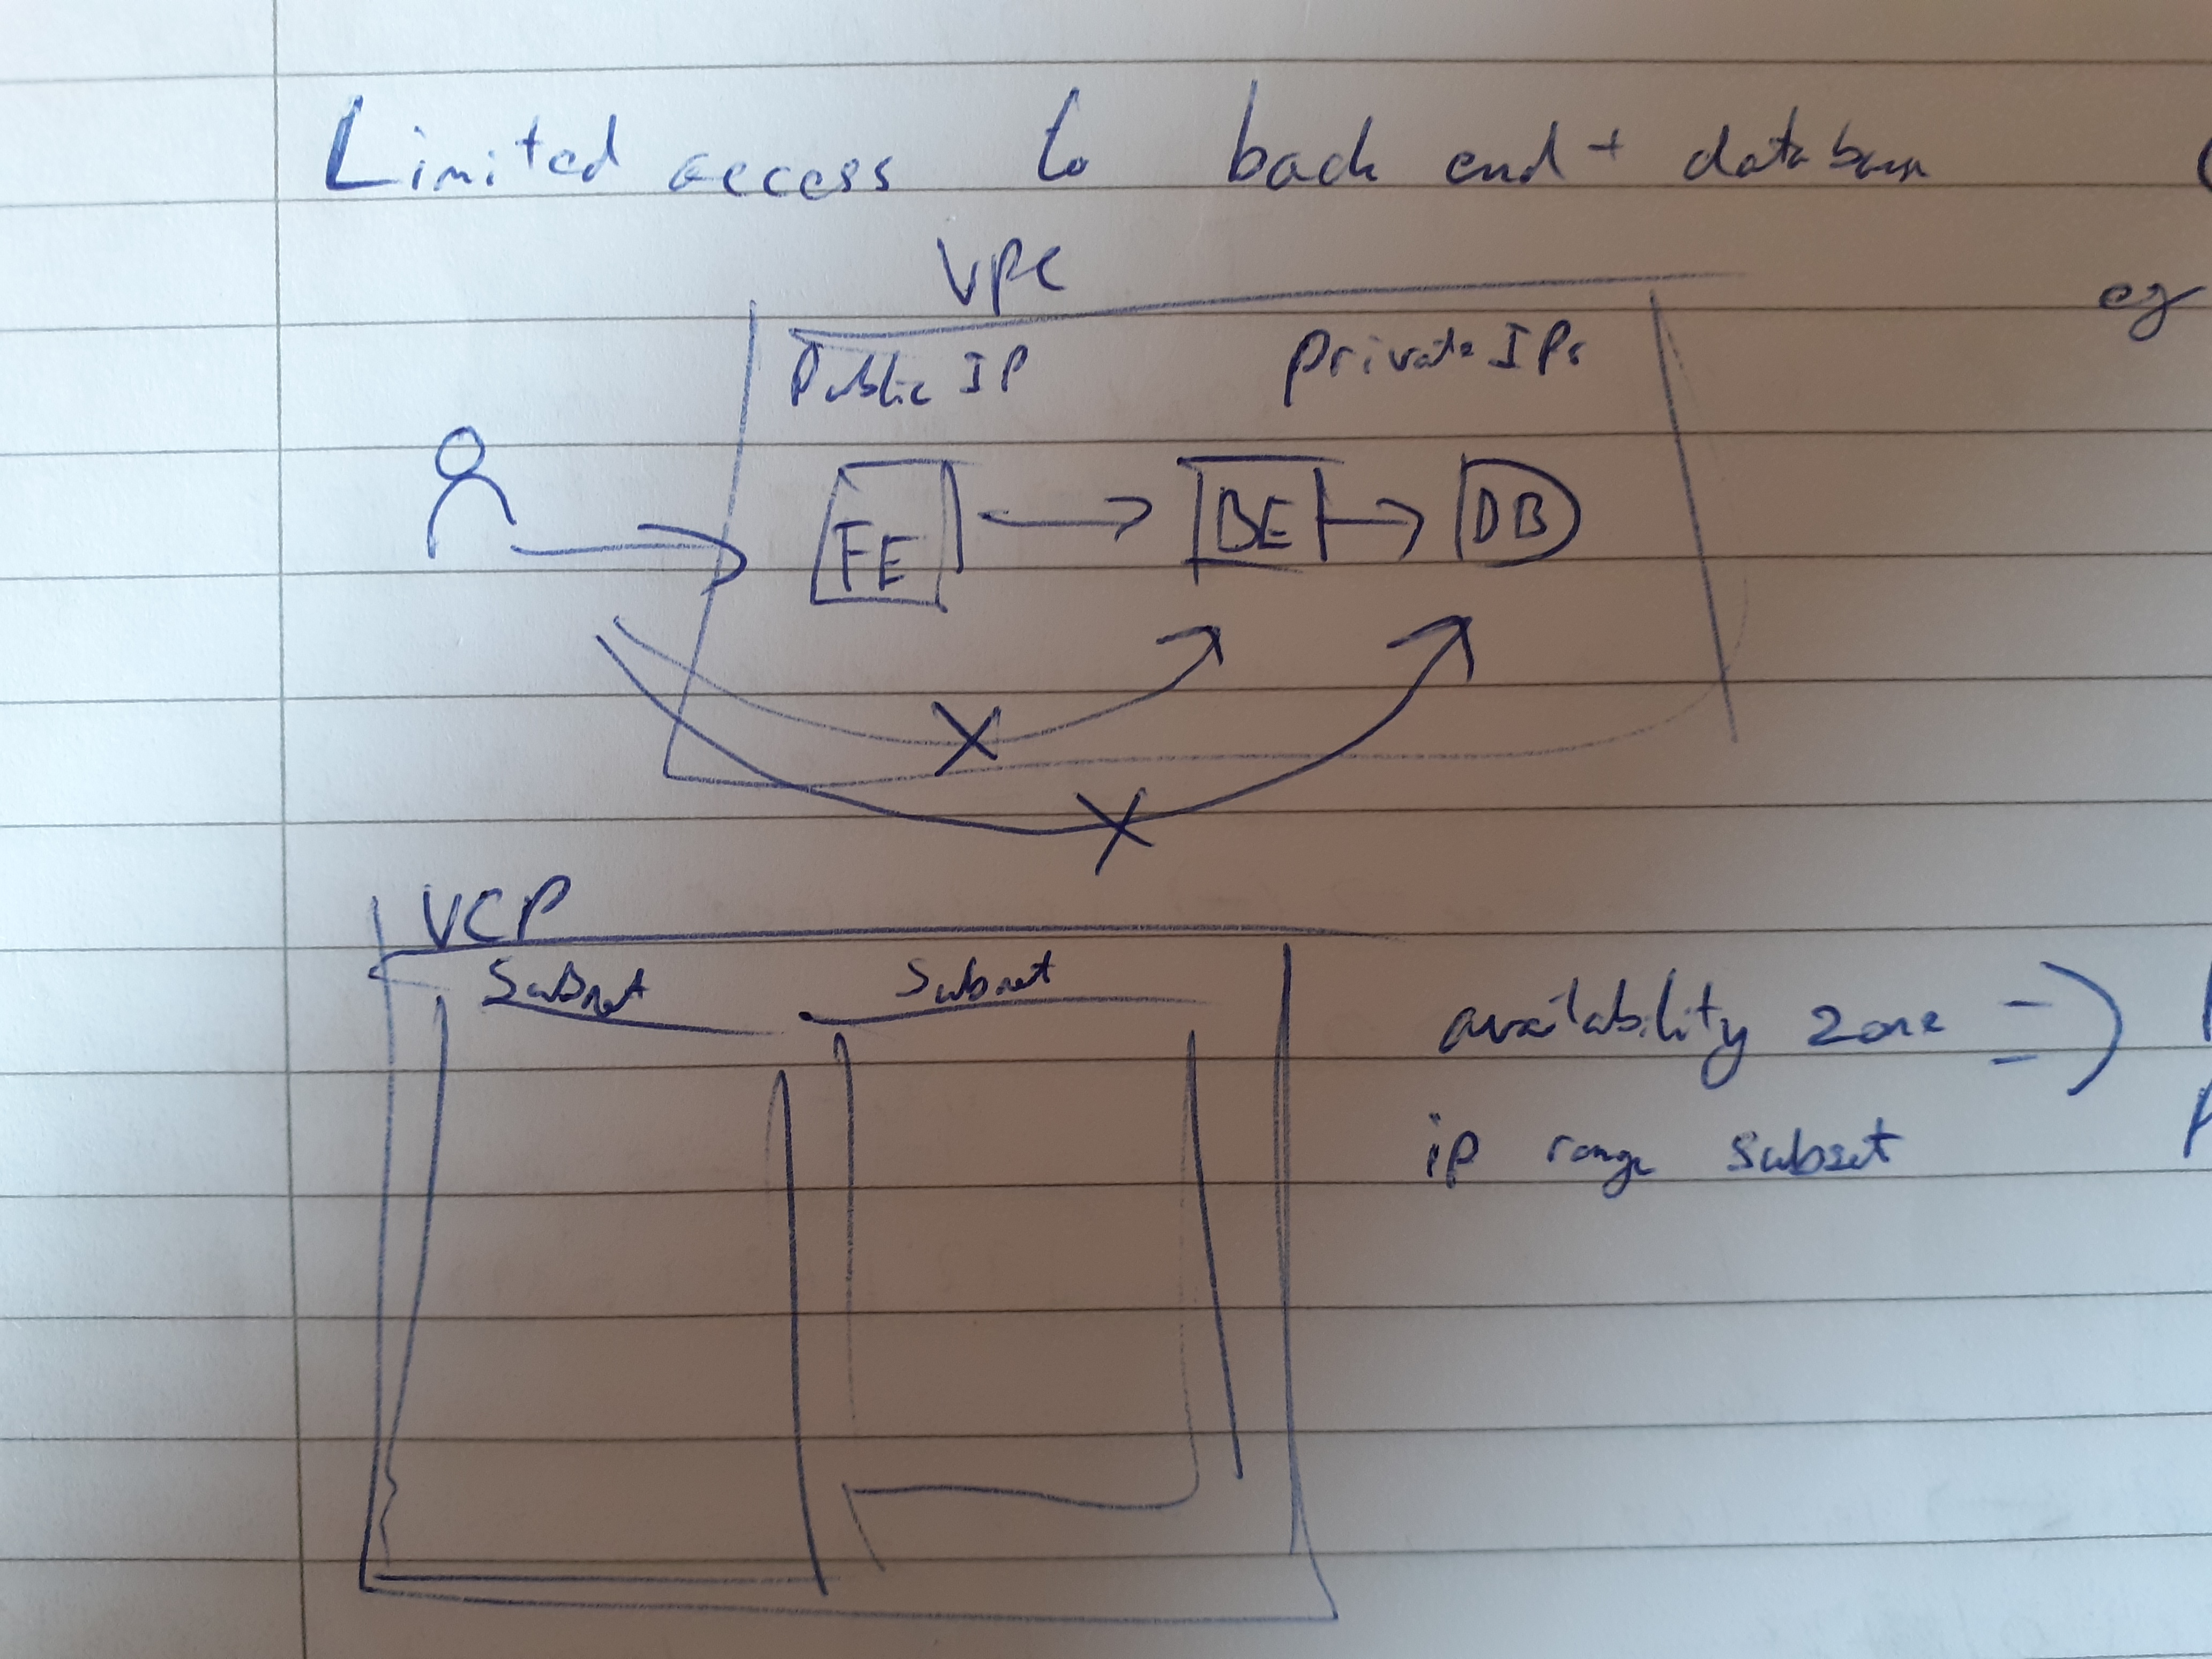 Limited access to back end + database
eg
VPC
Public IP
Private IPs
FE
BE
DB
X
X
VCP
Subnet
Subnet
availability zone =>
ip range subset